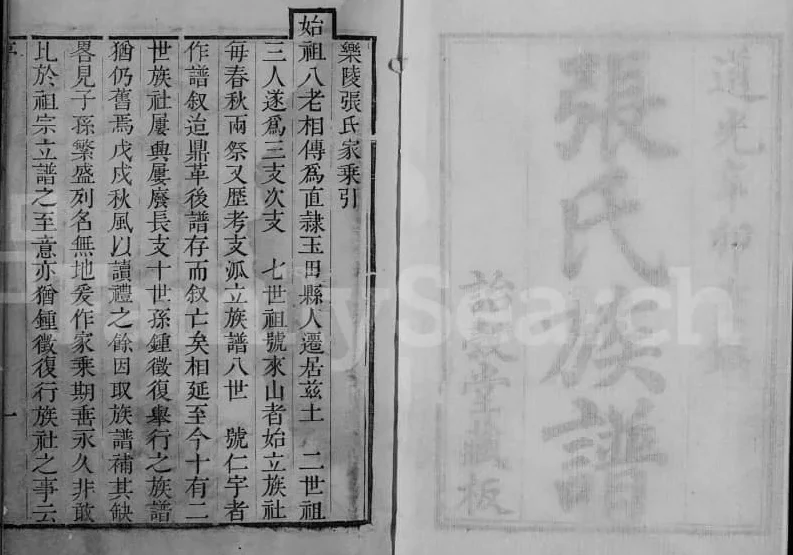 道光年
張氏族譜
詒穀堂藏板
樂陵張氏家乘引
始祖八老相傳爲直隷玉田縣人遷居茲土 二世祖
三人遂爲三支次支 七世祖號來山者始立族社
每春秋兩祭又歷考支派立族譜八世 號仁宇者
作譜叙迨鼎革後譜存而叙亡矣相延至今十有二
世族社屢興屢廢長支十世孫鍾徵復舉行之族譜
猶仍舊焉戊戌秋風以讀禮之餘因取族譜補其缺
畧見子孫繁盛列名無地爰作家乘期垂永久非敢
比於祖宗立譜之至意亦猶鍾徵復行族社之事云
一
FamilySearch